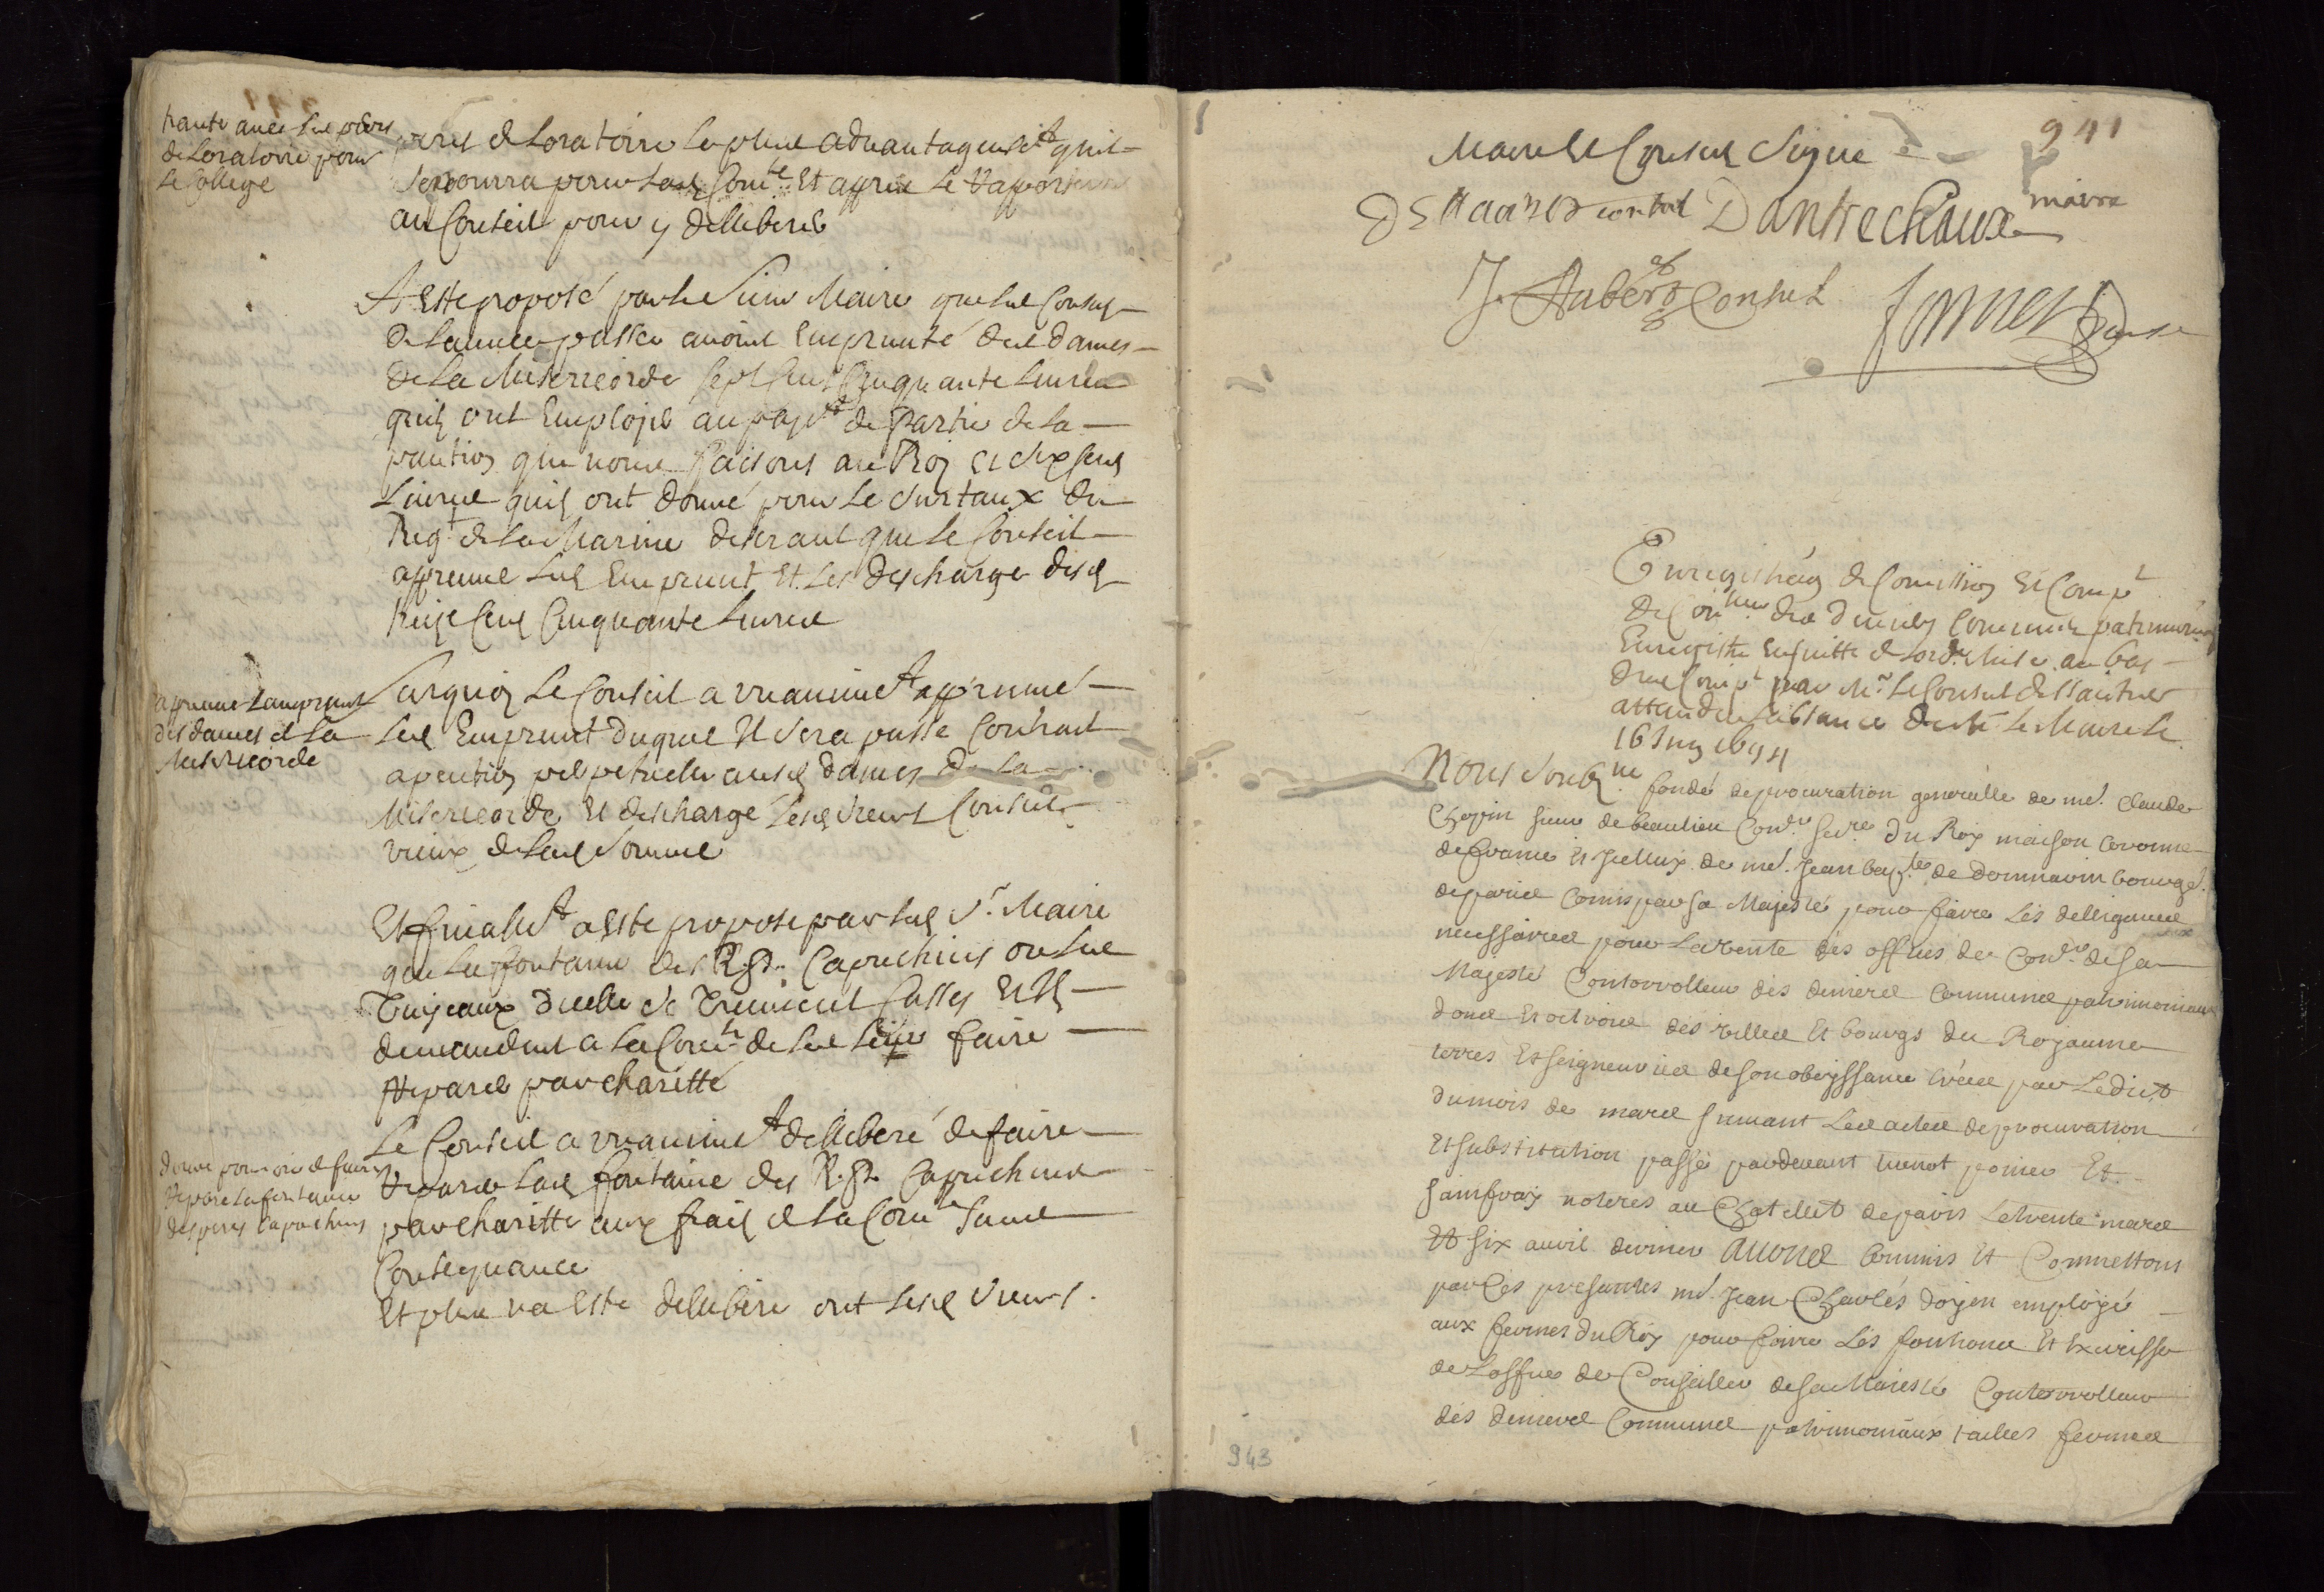 traite avec les peres
de Loratoire pour
Le College
peres de Loratoire Le plus advantageusemt quil
se pourra pour lad. Comte. Et appres Le Rapporter
au Conseil pour y dellibere
A Este proposé par le sieur Maire que les Consuls
de Lannee passee avoint Emprunté des dames
de La Misericorde sept Cens Cinquante Livres
quils ont Employes au payemt de Partie de La
pantion que nous faisons au Roy et six Cens
Livres quils ont donné pour Le surtaux du
Regt. de La Marine desirant que Le Conseil
appreuve led. Emprunt Et les descharge desd.
treise Cens Cinquante Livres
apreuve Lamprunt
des dames de La
Misericorde
Surquoy Le Conseil a unanimemt appreuvé
led. Emprunt duquel Il sera passé Contract
a pention perpetuelle ausd. dames de La
Misericorde Et descharge lesd. sieurs Consuls
vieux de lad. somme
Et finallemt a este propose par led. Sr. Maire
que La fontaine des R.P. Capuchins ou les
Tuyeaux dicelle se treuvent Casses Et Ils
demandent a La Comte. de la leur faire
Reparer par charitté
donné pouvoir de faire
reparer La fontaine
des peres Capuchins
Le Conseil a unanimemt delliberé de faire
Reparer lad. fontaine des R.P. Capuchins
par charitté aux frais de La Comte sans
Consequance
Et plus na Este dellibere ont lesd. sieurs
941
Maire Et Consuls signé
consul Dantrechaux maire
J. Aubert Consul
Enregistraõn de Comission Et Compt
de Conlleur des deniers Communs patrimoniaux
Enregistre ensuitte de Lordce Mise au bas
dud. Compt par Mr. Le Consul
attandu Labsance de Mr Le Maire Le
16 Juin 1694
Nous soubzne. fondé de procuration generalle de me. Claude
Chopin sieur de beaulieu Coner. Secre. du Roy maison Couronne
de france Et Icelluy de me. Jean bapte. de Dommavin bourgs.
de paris Comis par sa Majesté pour faire Les delligences
necessaires pour la vente des offices de Coner. de sa
Majesté Controrolleur des deniers Communs patrimoniaux
dons Et octrois des villes Et bourgs du Royaume
terres Et seigneuries de son obeyssance crées par Ledict
du mois de mars suivant Les actes de procuration
Et substitution passés pardevant menot poines Et
sainfray noteres au Chatellet de paris Le trente mars
Et six avril dernier avons Commis Et Commettons
par Ces presentes me. Jean Charles doyen employé
aux fermes du Roy pour faire Les fonctions Et Exercisse
de Loffice de Conseiller de sa Majesté Controrolleur
des deniers Communs patrimoniaux tailles fermes
943